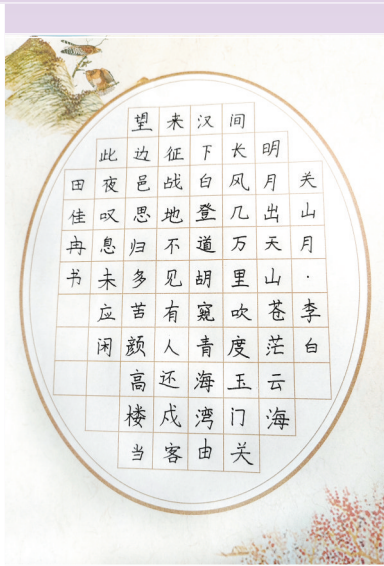 关山月·李白
明月出天山苍茫云海
间长风几万里吹度玉门关
汉下白登道胡窥青海湾由
来征战地不见有人还戍客
望边邑思归多苦颜高楼当
此夜叹息未应闲
田佳冉书